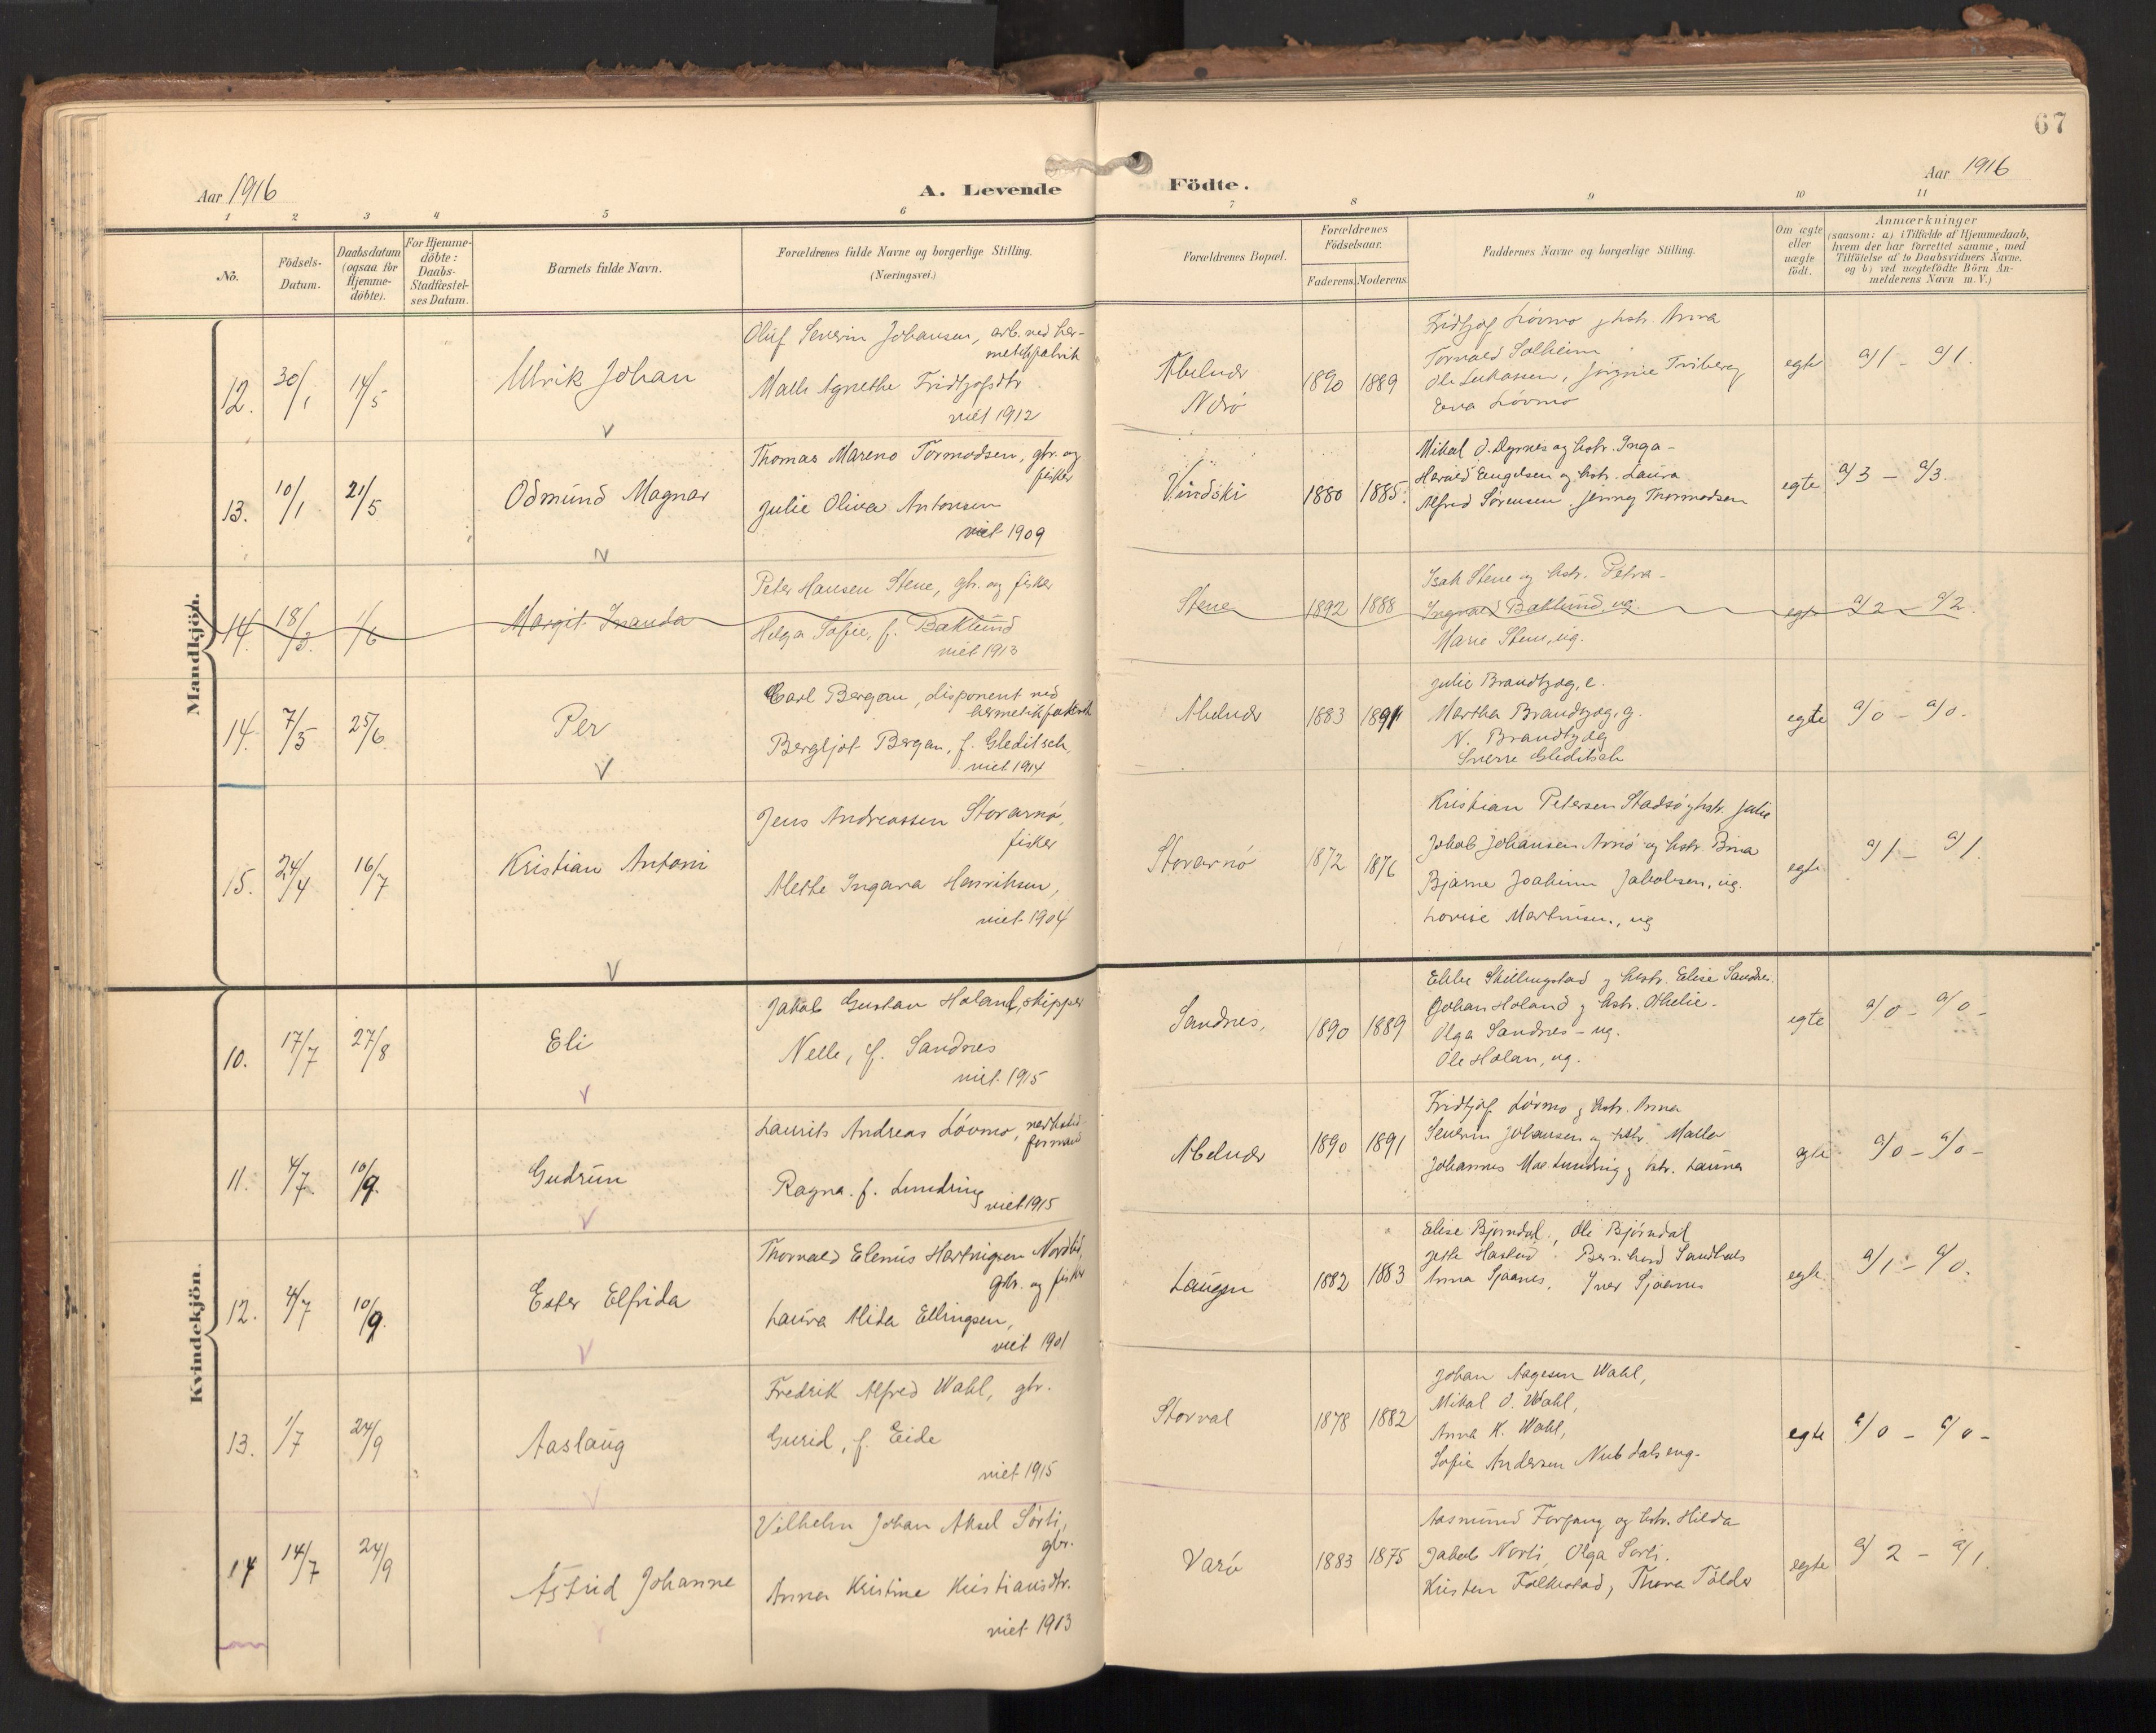 67
Aar 1916
A. Levende Födte.
Aar 1916
1 2 3 4 5 6 7 8 9 10 11
No.
Födsels-
Datum.
Daabsdatum
(ogsaa for
Hjemme-
döbte).
For Hjemme-
döbte:
Daabs-
Stadfæstel-
ses Datum.
Barnets fulde Navn.
Forældrenes fulde Navne og borgerlige Stilling.
(Næringsvei.)
Forældrenes Bopæl.
Forældrenes
Födselsaar.
Faderens. Moderens.
Faddernes Navne og borgerlige Stilling.
Om ægte
eller
uægte
födt.
Anmærkninger
(saasom: a) i Tilfælde af Hjemmedaab,
hvem der har forrettet samme, med
Tilföielse af to Daabsvidners Navne.
og b) ved uægtefödte Börn An-
melderens Navn m. V.)
Mandkjön.
12. 30/1 14/5
Ulrik Johan
Oluf Severin Johansen, arb. ved her-
metikfabrik
Malla Agnethe Fridtjofsdtr
viet 1912
Abelvær
Nærø
1890 1889
Fridtjof Løvmo og hstr. Anna
Torvald Solheim
Ole Lukassen, Jørgine Friberg
Eva Løvmo
egte
a/1 - a/1.
13. 10/1 21/5
Odmund Magnar
Thomas Mareno Tormodsen, gbr. og
fisker
Julie Oliva Antonsen
viet 1909
Vindski
1880 1885.
Mikal O. Dyrnes og hstr. Inga -
Harald Engelsen og hstr. Laura
Alfred Sørensen. Jenny Thormodsen
egte
a/3 - a/3.
14. 18/3. 1/6
Margit Ivanda
Peter Hansen Stene, gbr. og fisker
Helga Sofie, f. Baklund
viet 1913
Stene
1892 1888
Isak Stene og hstr. Petra -
Ingvard Baklund, ug.
Marie Stene, ug.
egte
a/2 - a/2.
14. 7/5 25/6.
Per
Carl Bergan, disponent ved
hermetikfabrik
Bergljot Bergan, f. Gleditsch,
viet 1914
Abelvær
1883 1891
Julie Brandtzæg, e.
Martha Brandtzæg, g.
N. Brandtzæg
Sverre Gleditsch
egte
a/0 - a/0.
15. 24/4 16/7
Kristian Antoni
Jens Andreassen Storarnø,
fisker
Alethe Ingara Henriksen,
viet 1904
Storarnø
1872 1876
Kristian Petersen Stadsø og hstr. Julie
Jakob Johansen Arnø og hstr. Brna
Bjarne Joakim Jakobsen, ug.
Lovise Martinsen, ug
egte
a/1 - a/1.
Kvindekjön.
10. 17/7 27/8
Eli
Jakob Gustav Holand, skipper
Nelle, f. Sandnes
viet 1915
Sandnes,
1890 1889
Ebbe Skillingstad og hstr. Elise Sandnes.
Johan Holand og hstr. Othelie -
Olga Sandnes - ug.
Ole Holan, ug.
egte
a/0 - a/0 -
11. 4/7. 10/9.
Gudrun
Laurits Andreas Løvmo,
formand
Ragna. f. Lundring
viet 1915
Abelvær
1890 1891
Fridtjof Løvmo og hstr. Anna
Severin Johansen og hstr. Malla
Johannes Moe Lundring og hstr. Laura
egte
a/0 - a/0 -
12. 4/7 10/9.
Ester Elfrida
Thorvald Elenius Hartvigsen Nordlid,
gbr. og fisker
Laura Alida Ellingsen,
viet 1901
Laugen
1882 1883
Elise Bjørndal, Ole Bjørndal
Jette Hasled. Bernhard Sandbæs
Anna Sjaanes, Iver Sjaanes
egte
a/1 - a/0.
13. 1/7 24/9
Aaslaug
Fredrik Alfred Wahl, gbr.
Gurid, f. Eide
viet 1915
Storval
1878 1882
Johan Aagesen Wahl,
Mikal O. Wahl,
Anna K. Wahl,
Sofie Andersen Nubdalseng.
egte
a/0 - a/0 -
14 14/7 24/9
Astrid Johanne
Vilhelm Johan Aksel Sørli,
gbr.
Anna Kristine Kristiansdtr.
viet 1913
Varø
1883 1875
Aasmund Forgang og hstr. Hilda
Jakob Norli, Olga Sørli.
Kristen Falkestad, Thora Tølder
egte
a/2 - a/1.